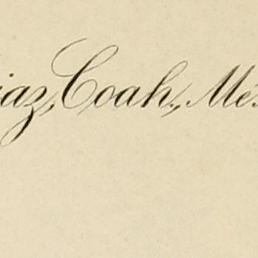 iaz, Coah., Méx